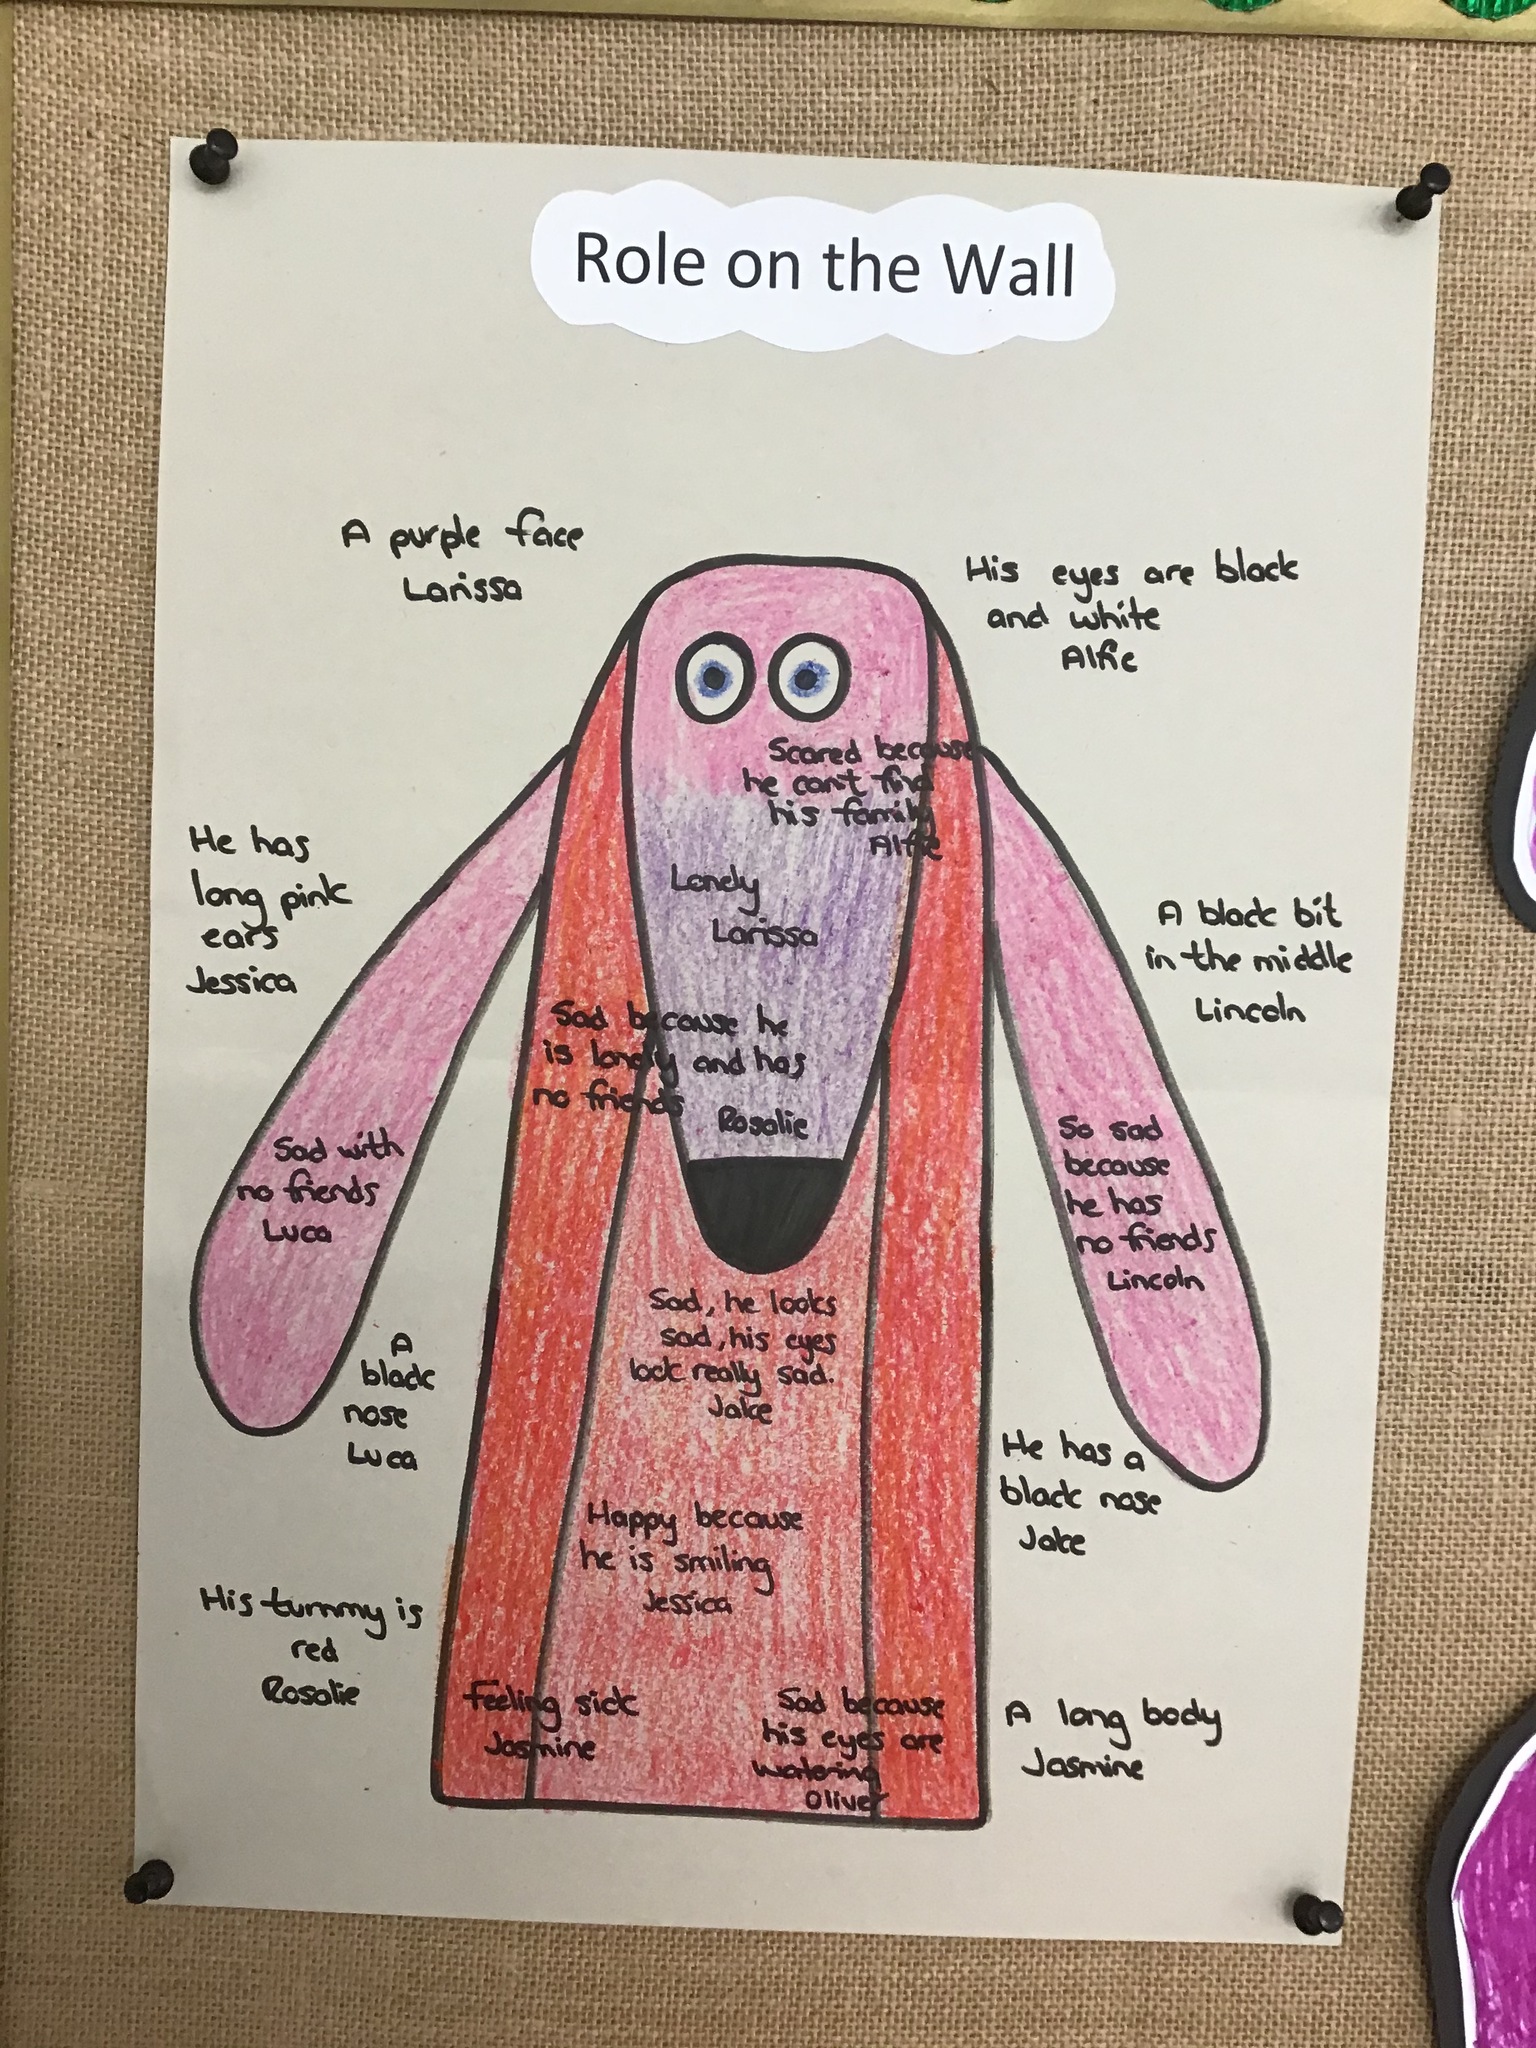 Role on the Wall
A purple face
Larissa
His eyes are black
and white
Alfie
Scared because
he can't find
his family
Alfie
He has
long pink
ears
Jessica
Lonely
Larissa
A black bit
in the middle
Lincoln
Sad because he
is lonely and has
no friends
Rosalie
Sad with
no friends
Luca
So sad
because
he has
no friends
Lincoln
Sad, he looks
sad, his eyes
look really sad.
Jake
A
black
nose
Luca
He has a
black nose
Jake
Happy because
he is smiling
Jessica
His tummy is
red
Rosalie
Feeling sick
Jasmine
Sad because
his eyes are
watering
Oliver
A long body
Jasmine